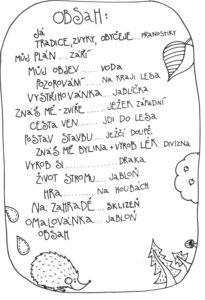 OBSAH:
JÁ
TRADICE, ZVYKY, OBYČEJE... PRANOSTIKY
MŮJ PLÁN .... ZÁŘÍ
MŮJ OBJEV ...... VODA
POZOROVÁNÍ ... NA KRAJI LESA
VYSTŘIHOVÁNKA ... JABLÍČKA
ZNÁŠ MĚ - ZVÍŘE ...... JEŽEK ZÁPADNÍ
CESTA VEN ..... JDI DO LESA
POSTAV STAVBU ... JEŽČÍ DOUPĚ
ZNÁŠ MĚ BYLINA + VÝROB LÉK.. DIVIZNA
VYROB SI ......... DRAKA
ŽIVOT STROMU ... JABLOŇ
HRA ........ NA HOUBÁCH
NA ZAHRADĚ .... SKLIZEŇ
OMALOVÁNKA ... JABLOŇ
OBSAH